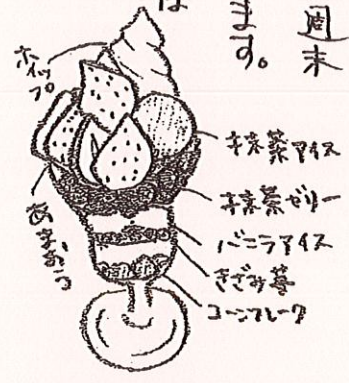 週末
ます。
は
ホイップ
あまおう
抹茶アイス
抹茶ゼリー
バニラアイス
きざみ苺
コーンフレーク